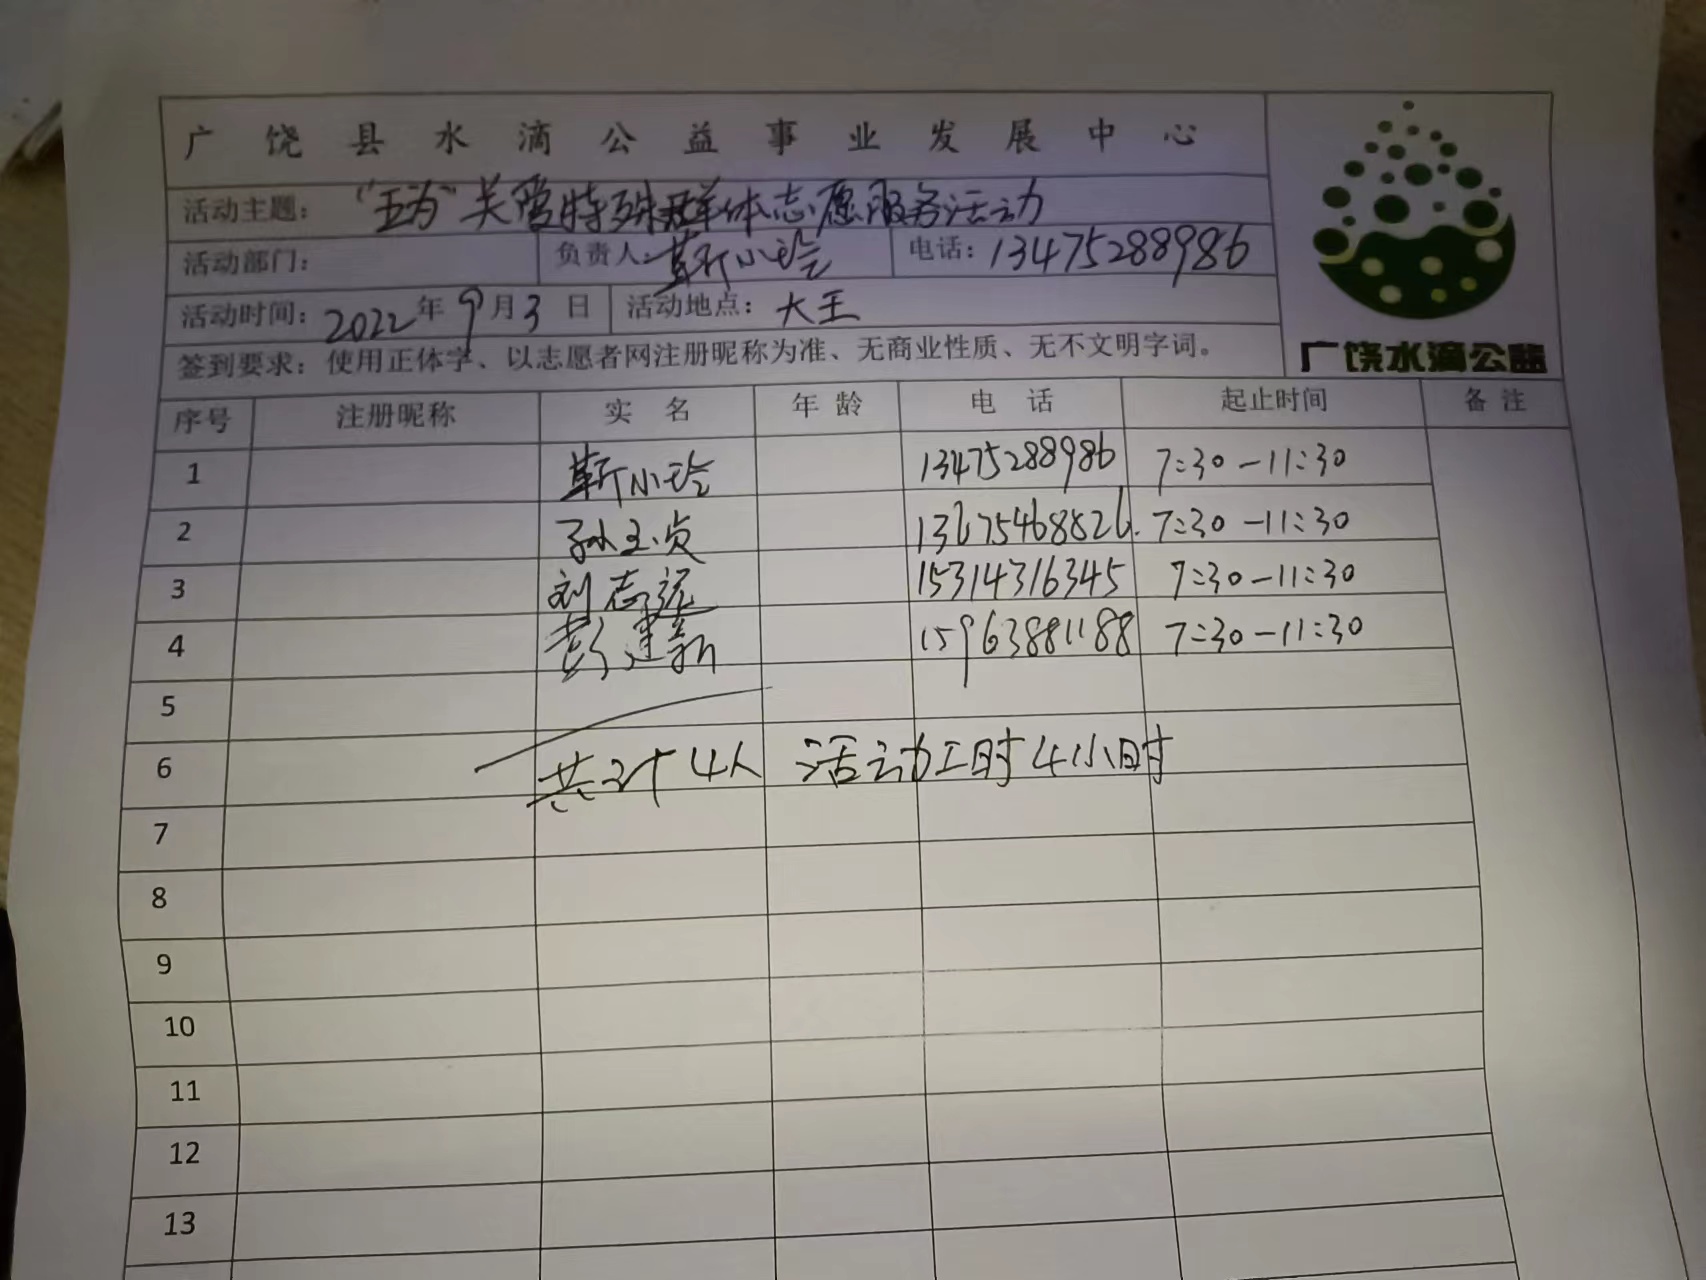 广饶县水滴公益事业发展中心
活动主题：“五为”关爱特殊群体志愿服务活动
活动部门： 负责人 靳小玲 电话：13475288986
活动时间：2022年9月3日 活动地点：大王
签到要求：使用正体字、以志愿者网注册昵称为准、无商业性质、无不文明字词。
广饶水滴公益
序号 注册昵称 实名 年龄 电话 起止时间 备注
1 靳小玲 13475288986 7:30-11:30
2 孙玉贞 13675468826. 7:30-11:30
3 刘志远 15314316345 7:30-11:30
4 彭建新 15963881188 7:30-11:30
5
6 共计4人 活动工时4小时
7
8
9
10
11
12
13